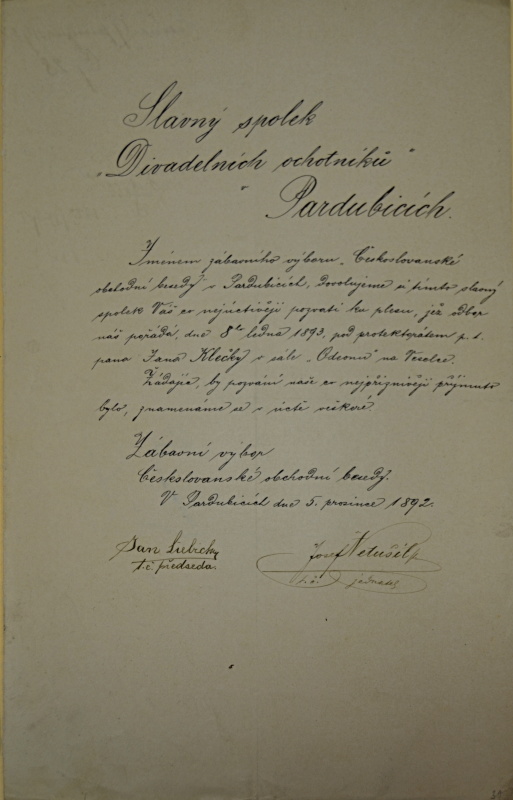 Slavný spolek
„Divadelních ochotníků"
v Pardubicích.
Jménem zábavního výboru „Českoslovanské
obchodní besedy" v Pardubicích, dovolujeme si tímto slavný
spolek Váš co nejuctivěji pozvati ku plesu, jež odbor
náš pořádá, dne 8ho ledna 1893, pod protektorátem p. t.
pana Jana Klečky v sále „Odeonu" na Veselce.
Žádajíce, by pozvání naše co nejpříznivěji přijmuto
bylo, znamenáme se v úctě veškeré.
Zábavní výbor
Českslovanské obchodní besedy.
V Pardubicích dne 5. prosince 1892.
Jan
t. č. předseda.
Josef Netušil
t. č. jednatel